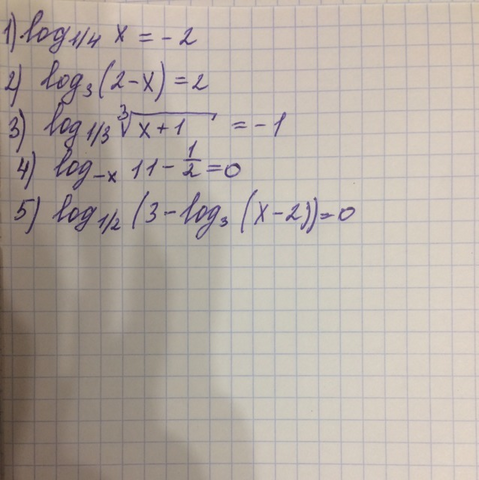 1) log_{1/4} x = -2
2) log_3 (2-x) = 2
3) log_{1/3} ∛(x+1) = -1
4) log_{-x} 11 - 1/2 = 0
5) log_{1/2} (3 - log_3 (x-2)) = 0